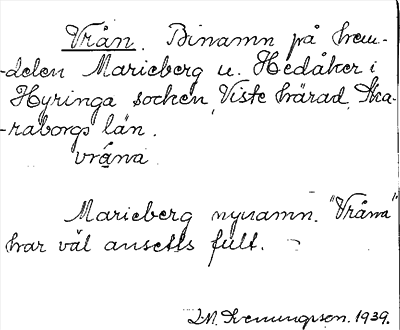 Vrån. Binamn på hem-
-delen Marieberg u. Hedåker i
Hyringa socken, Viste härad, Ska-
-raborgs län.
vrå̱na
Marieberg nynamn. "Vråna"
har väl ansetts fult.
1939.